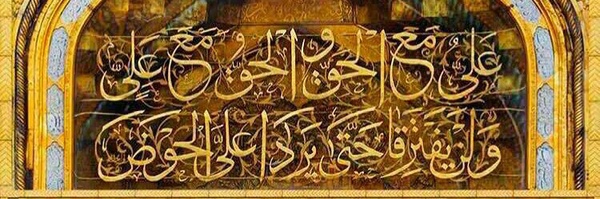 عَلیٌّ مَعَ الحَقِّ وَ الحَقُّ مَعَ عَلِیٍّ
وَلَنْ یَفتَرِقا حَتّی یَرِدا عَلَیَّ الحَوضَ